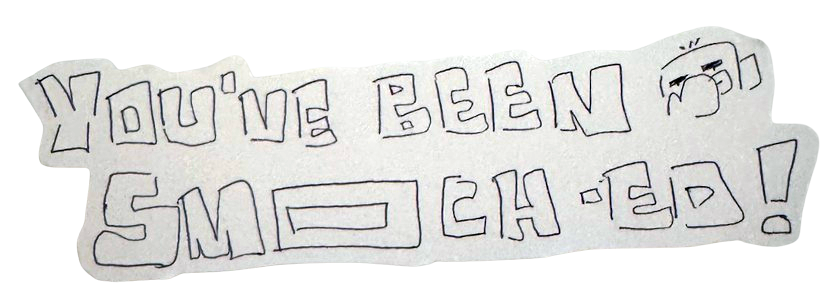 YOU'VE BEEN
SMOCH-ED!